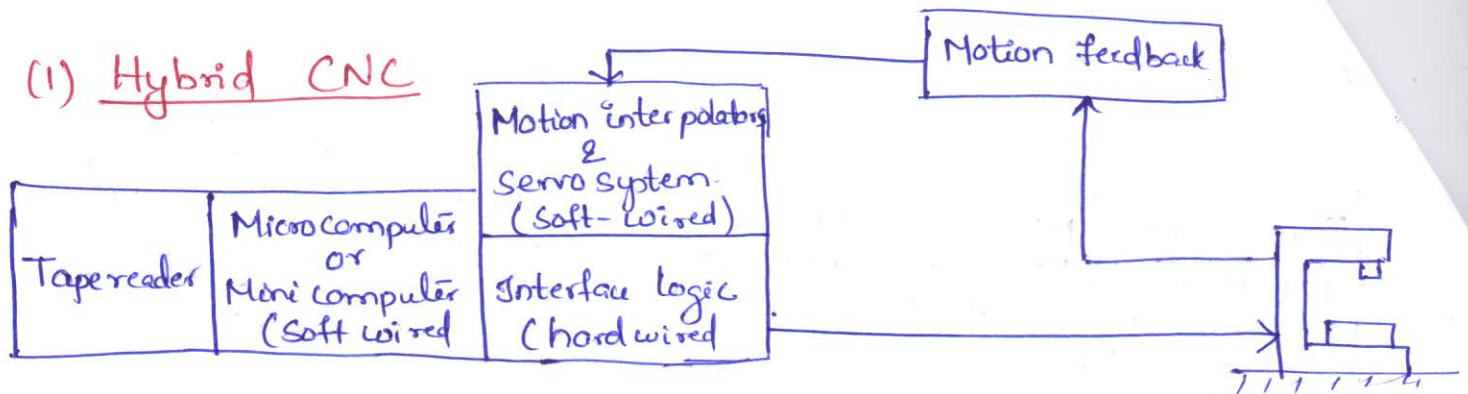 (1) Hybrid CNC
Motion feedback
Motion interpolators
&
Servo system
(Soft-wired)
Tape reader
Microcomputer
or
Mini computer
(Soft wired
Interface logic
(hard wired